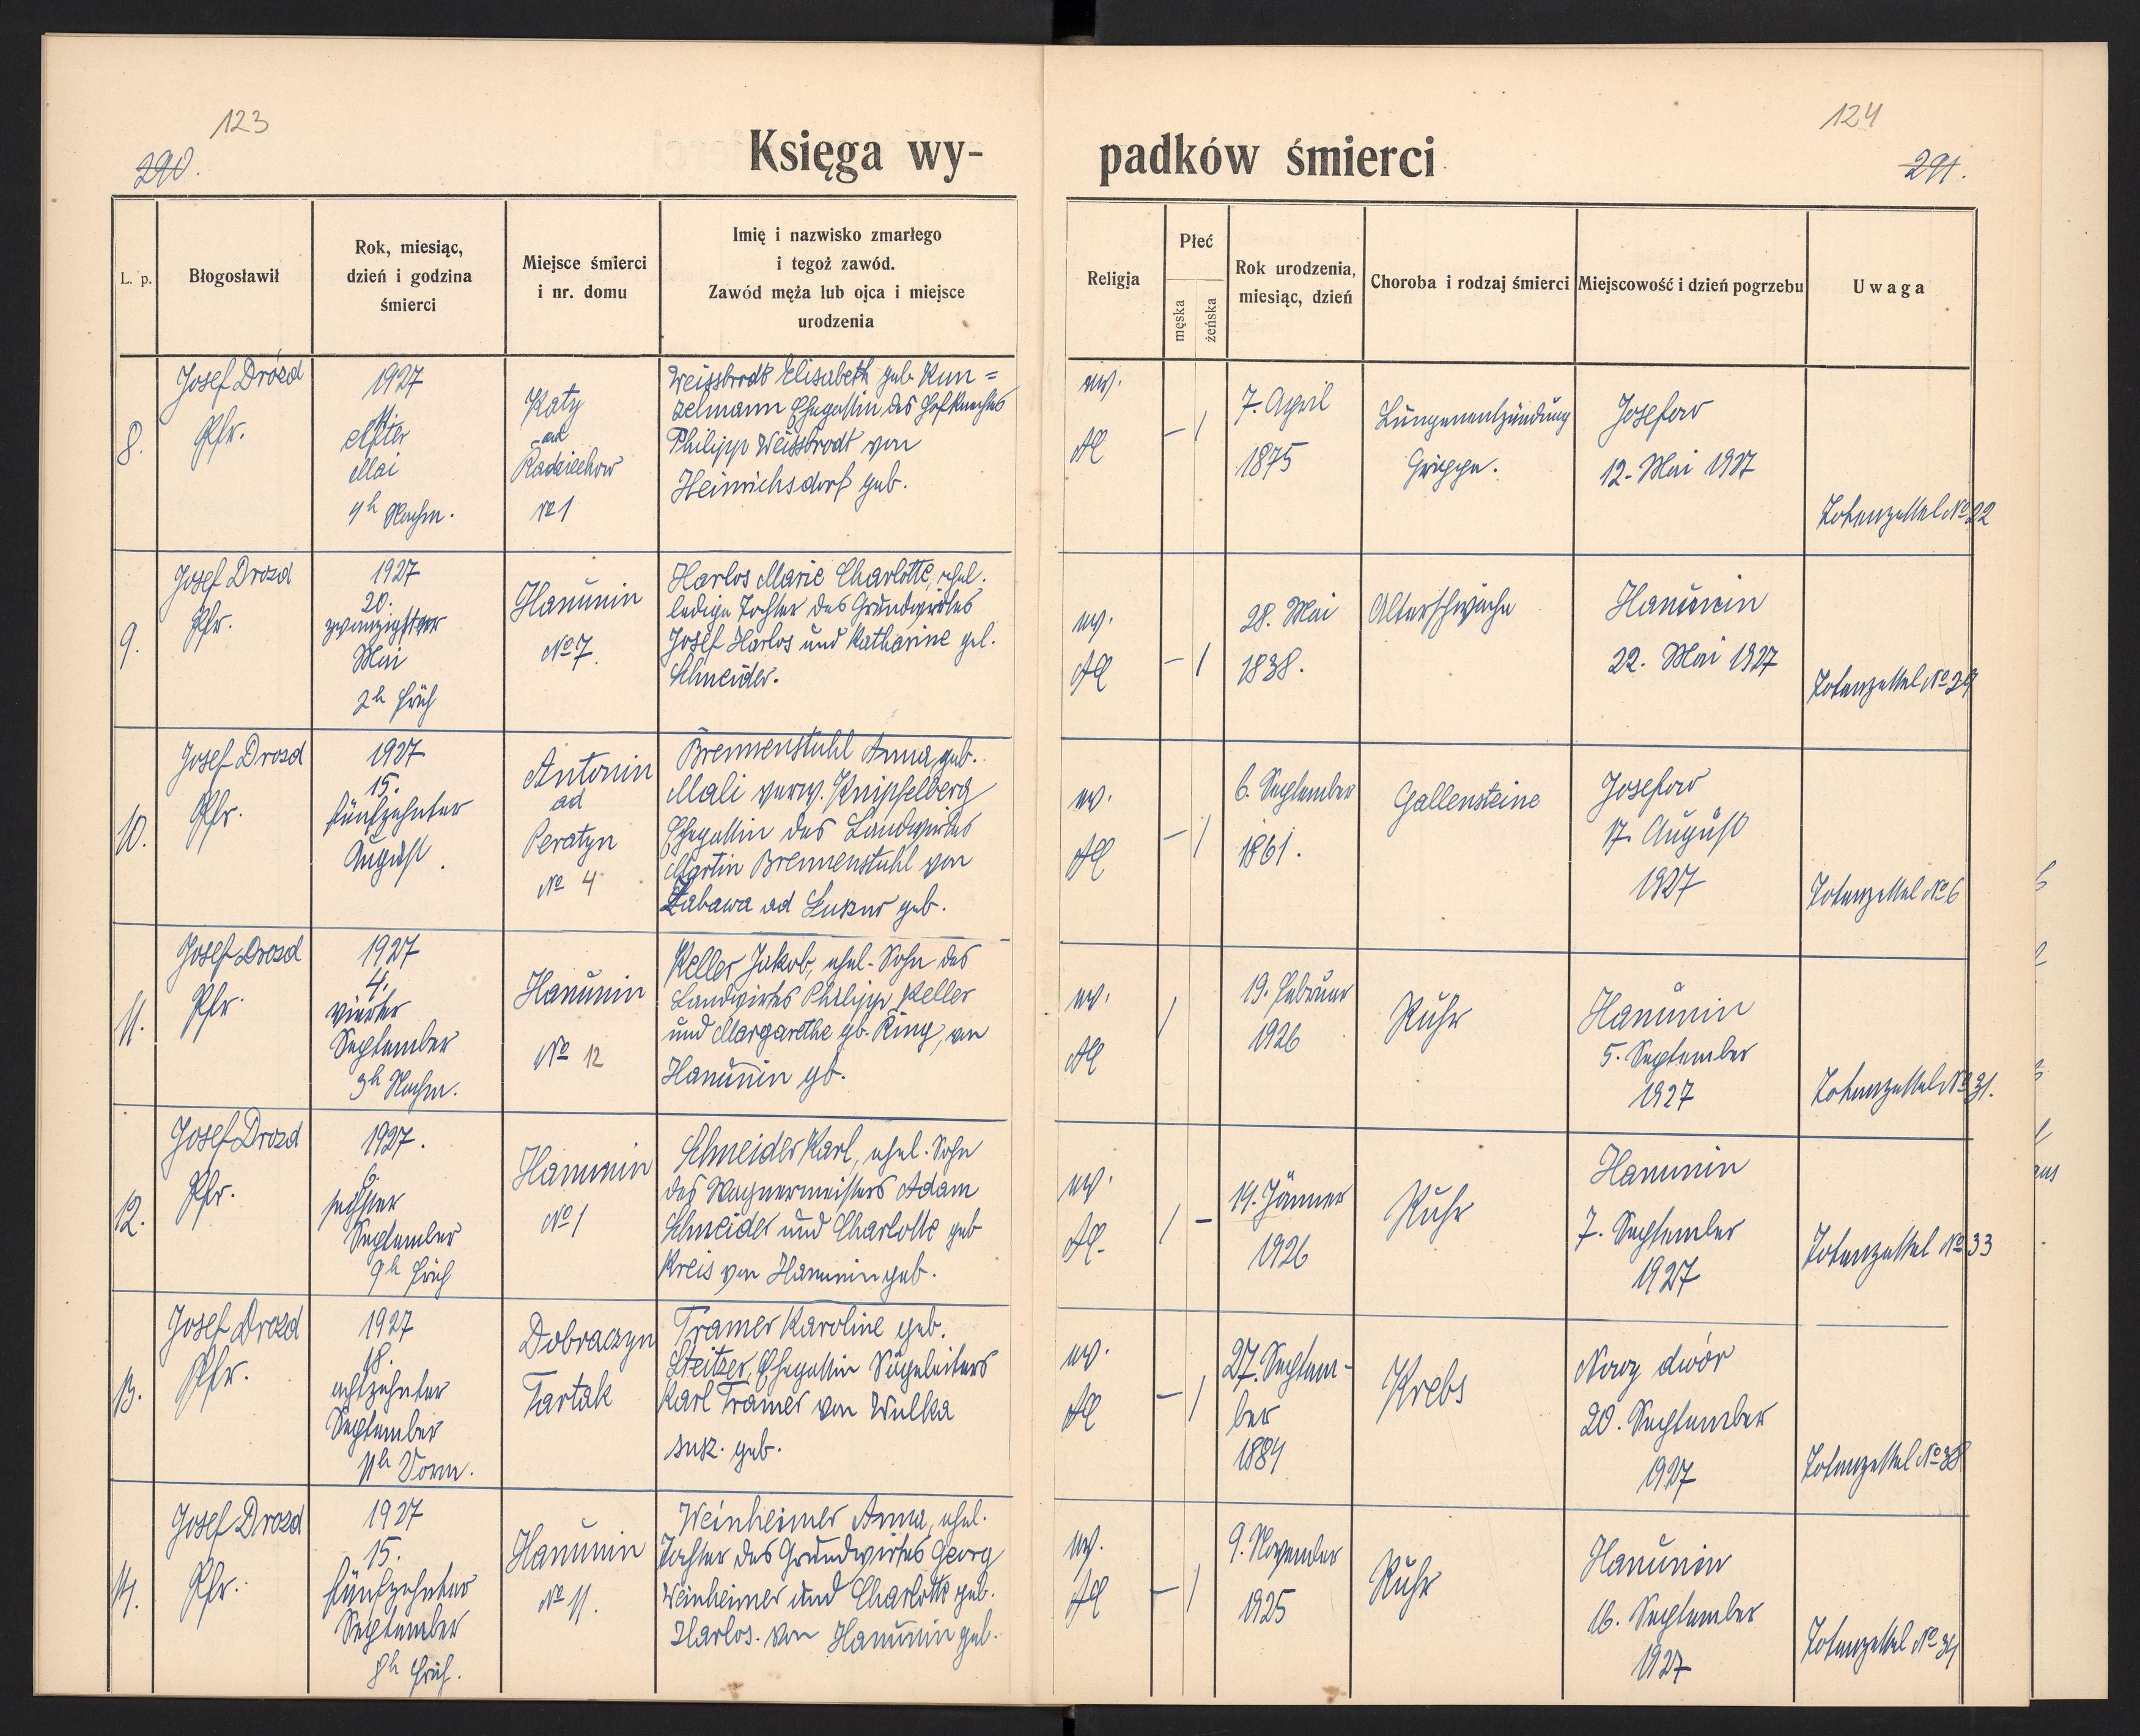 123
290.
Księga wy-
L. p.
Błogosławił
Rok, miesiąc,
dzień i godzina
śmierci
Miejsce śmierci
i nr. domu
Imię i nazwisko zmarłego
i tegoż zawód.
Zawód męża lub ojca i miejsce
urodzenia
8.
Josef Drozd
Pfr.
1927
Mai
4h Nachm.
Katy
ad
Radziechow
No 1
Weissbrodt Elisabeth geb. Kun=
zelmann Ehegattin des Hofknechtes
Philipp Weissbrodt von
Heinrichsdorf geb.
9.
Josef Drozd
Pfr.
1927
20.
zwanzigster
Mai
2h früh
Hanunin
No 7.
Harlos Marie Charlotte, ehel.
ledige Tochter des Grundwirtes
Josef Harlos und Katharine geb.
Schneider.
10.
Josef Drozd
Pfr.
1927
15.
fünfzehnter
August.
Antonin
ad
Peratyn
No 4
Brennenstuhl Anna, geb.
Mali verw. Knipfelberg
Ehegattin des Landwirtes
Martin Brennenstuhl von
Zabawa ad geb.
11.
Josef Drozd
Pfr.
1927
4.
vierter
September
3h Nachm.
Hanunin
No 12
Keller Jakob, ehel. Sohn des
Landwirtes Philipp Keller
und Margarethe gb. Ring, von
Hanunin gb.
12.
Josef Drozd
Pfr.
1927.
6.
sechster
September
9h früh
Hanunin
No 1
Schneider Karl, ehel. Sohn
des Wagnermeisters Adam
Schneider und Charlotte geb
Kreis von Hanunin geb.
13.
Josef Drozd
Pfr.
1927
18.
achtzehnter
September
11h Vorm.
Dobraczyn
Tartak
Tramer Karoline geb.
Steitzer, Ehegattin Sägeleiters
Karl Tramer von Wulka
susz. geb.
14.
Josef Drozd
Pfr.
1927
15.
fünfzehnter
September
8h früh.
Hanunin
No 11.
Weinheimer Anna, ehel.
Tochter des Grundwirtes Georg
Weinheimer und Charlotte geb.
Harlos. von Hanunin geb.
124
291.
padków śmierci
Religja
Płeć
męska
żeńska
Rok urodzenia,
miesiąc, dzień
Choroba i rodzaj śmierci
Miejscowość i dzień pogrzebu
Uwaga
ev.
AC
- /
7. April
1875
Lungenentzündung
Grippe.
Josefow
12. Mai 1927
Totenzettel No 22
ev.
AC
- /
28. Mai
1838.
Altersschwäche
Hanunin
22. Mai 1927
Totenzettel No 24
ev.
AC
- /
6. September
1861.
Gallensteine
Josefow
17. August
1927
Totenzettel No 6
ev.
AC
/
19. Februar
1926
Ruhr
Hanunin
5. September
1927
Totenzettel No 31.
ev.
AC.
/ -
14. Jänner
1926
Ruhr
Hanunin
7. September
1927
Totenzettel No 33
ev.
AC
- /
27. Septem-
ber
1884
Krebs
Nowy dwór
20. September
1927
Totenzettel No 38
ev.
AC
- /
9. November
1925
Ruhr
Hanunin
16. September
1927
Totenzettel No 34